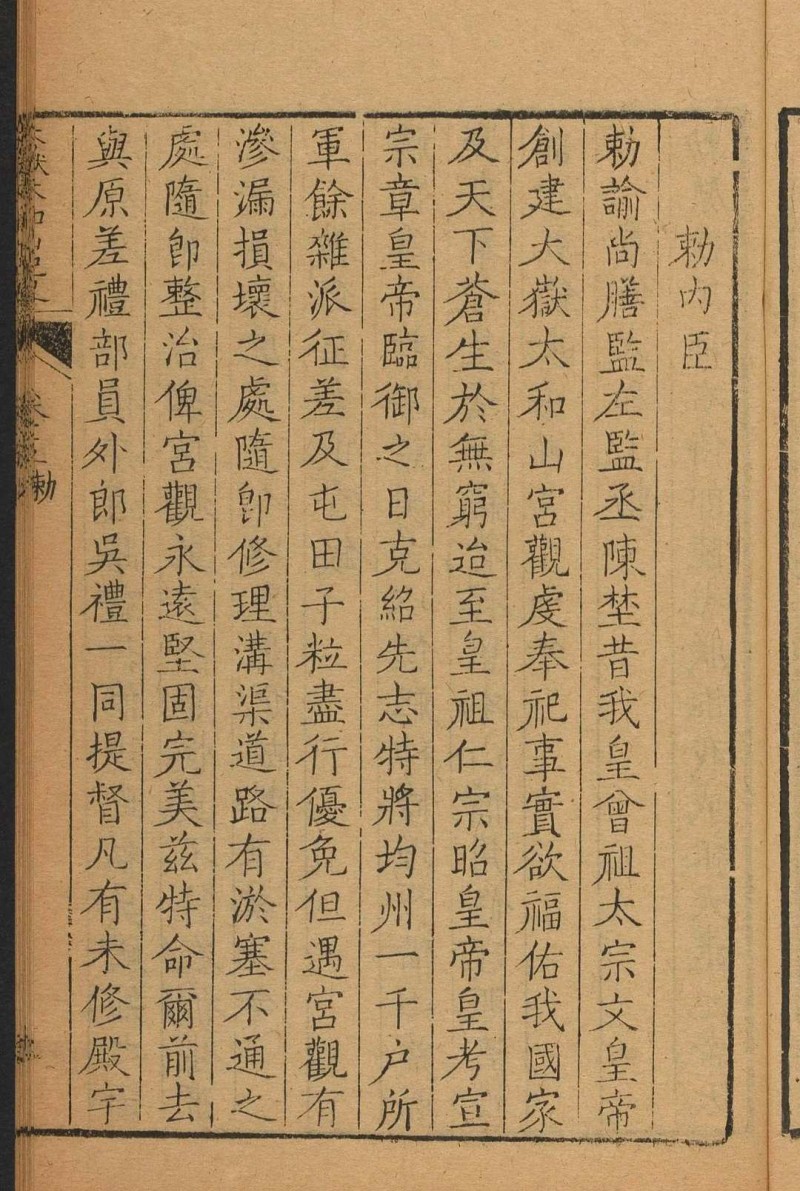 勅内臣
勅諭尚膳監左監丞陳埜昔我皇曾祖太宗文皇帝
創建大嶽太和山宮觀虔奉祀事實欲福佑我國家
及天下蒼生於無窮迨至皇祖仁宗昭皇帝皇考宣
宗章皇帝臨御之日克紹先志特將均州一千户所
軍餘雜派征差及屯田子粒盡行優免但遇宮觀有
滲漏損壞之處隨卽修理溝渠道路有淤塞不通之
處隨卽整治俾宮觀永遠堅固完美兹特命爾前去
與原差禮部員外郎吳禮一同提督凡有未修殿宇
勅